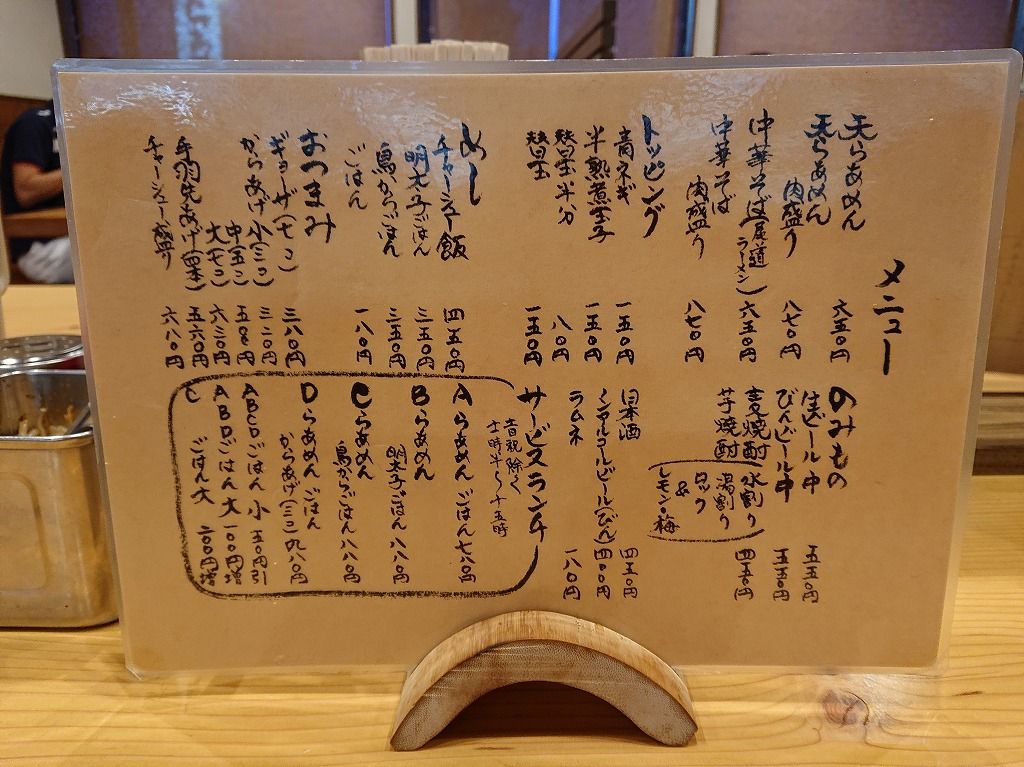 メニュー
天らあめん 六五〇円
天らあめん 肉盛り 八七〇円
中華そば(尾道ラーメン) 六五〇円
中華そば 肉盛り 八七〇円
トッピング
青ネギ 一五〇円
半熟煮玉子 一五〇円
替玉半分 八〇円
替玉 一五〇円
めし
チャーシュー飯 四五〇円
明太子ごはん 三五〇円
鳥からごはん 三五〇円
ごはん 一八〇円
おつまみ
ギョーザ(七コ) 三八〇円
からあげ 小(三コ) 三二〇円
中(五コ) 五〇〇円
大(七コ) 六三〇円
手羽先あげ(四本) 五六〇円
チャーシュー盛り 六八〇円
のみもの
生ビール中 五五〇円
びんビール中 五五〇円
麦焼酎 水割り
芋焼酎 湯割り 四五〇円
ロック
&
レモン・梅
日本酒 四五〇円
ノンアルコールビール(びん) 四〇〇円
ラムネ 一八〇円
サービスランチ
土日祝除く
十一時半〜十五時
A らあめん ごはん 七八〇円
B らあめん 明太子ごはん 八八〇円
C らあめん 鳥からごはん 八八〇円
D らあめん ごはん からあげ(三コ) 九八〇円
ABCDごはん小 五〇円引
ABDごはん大 一〇〇円増
C ごはん大 二〇〇円増